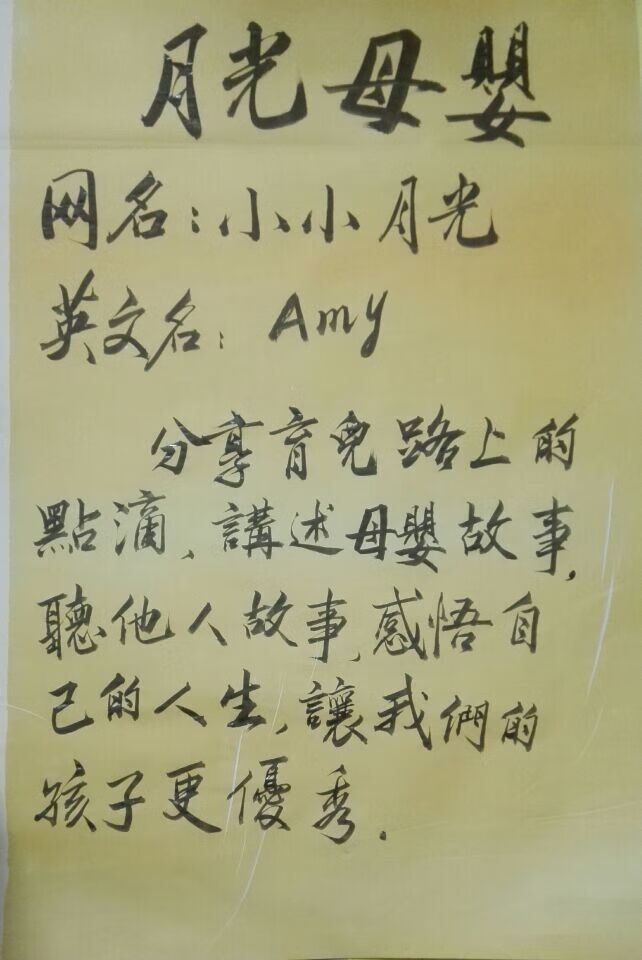 月光母嬰
网名：小小月光
英文名：Amy
分享育兒路上的
點滴、講述母嬰故事，
聽他人故事，感悟自
己的人生，讓我們的
孩子更優秀.